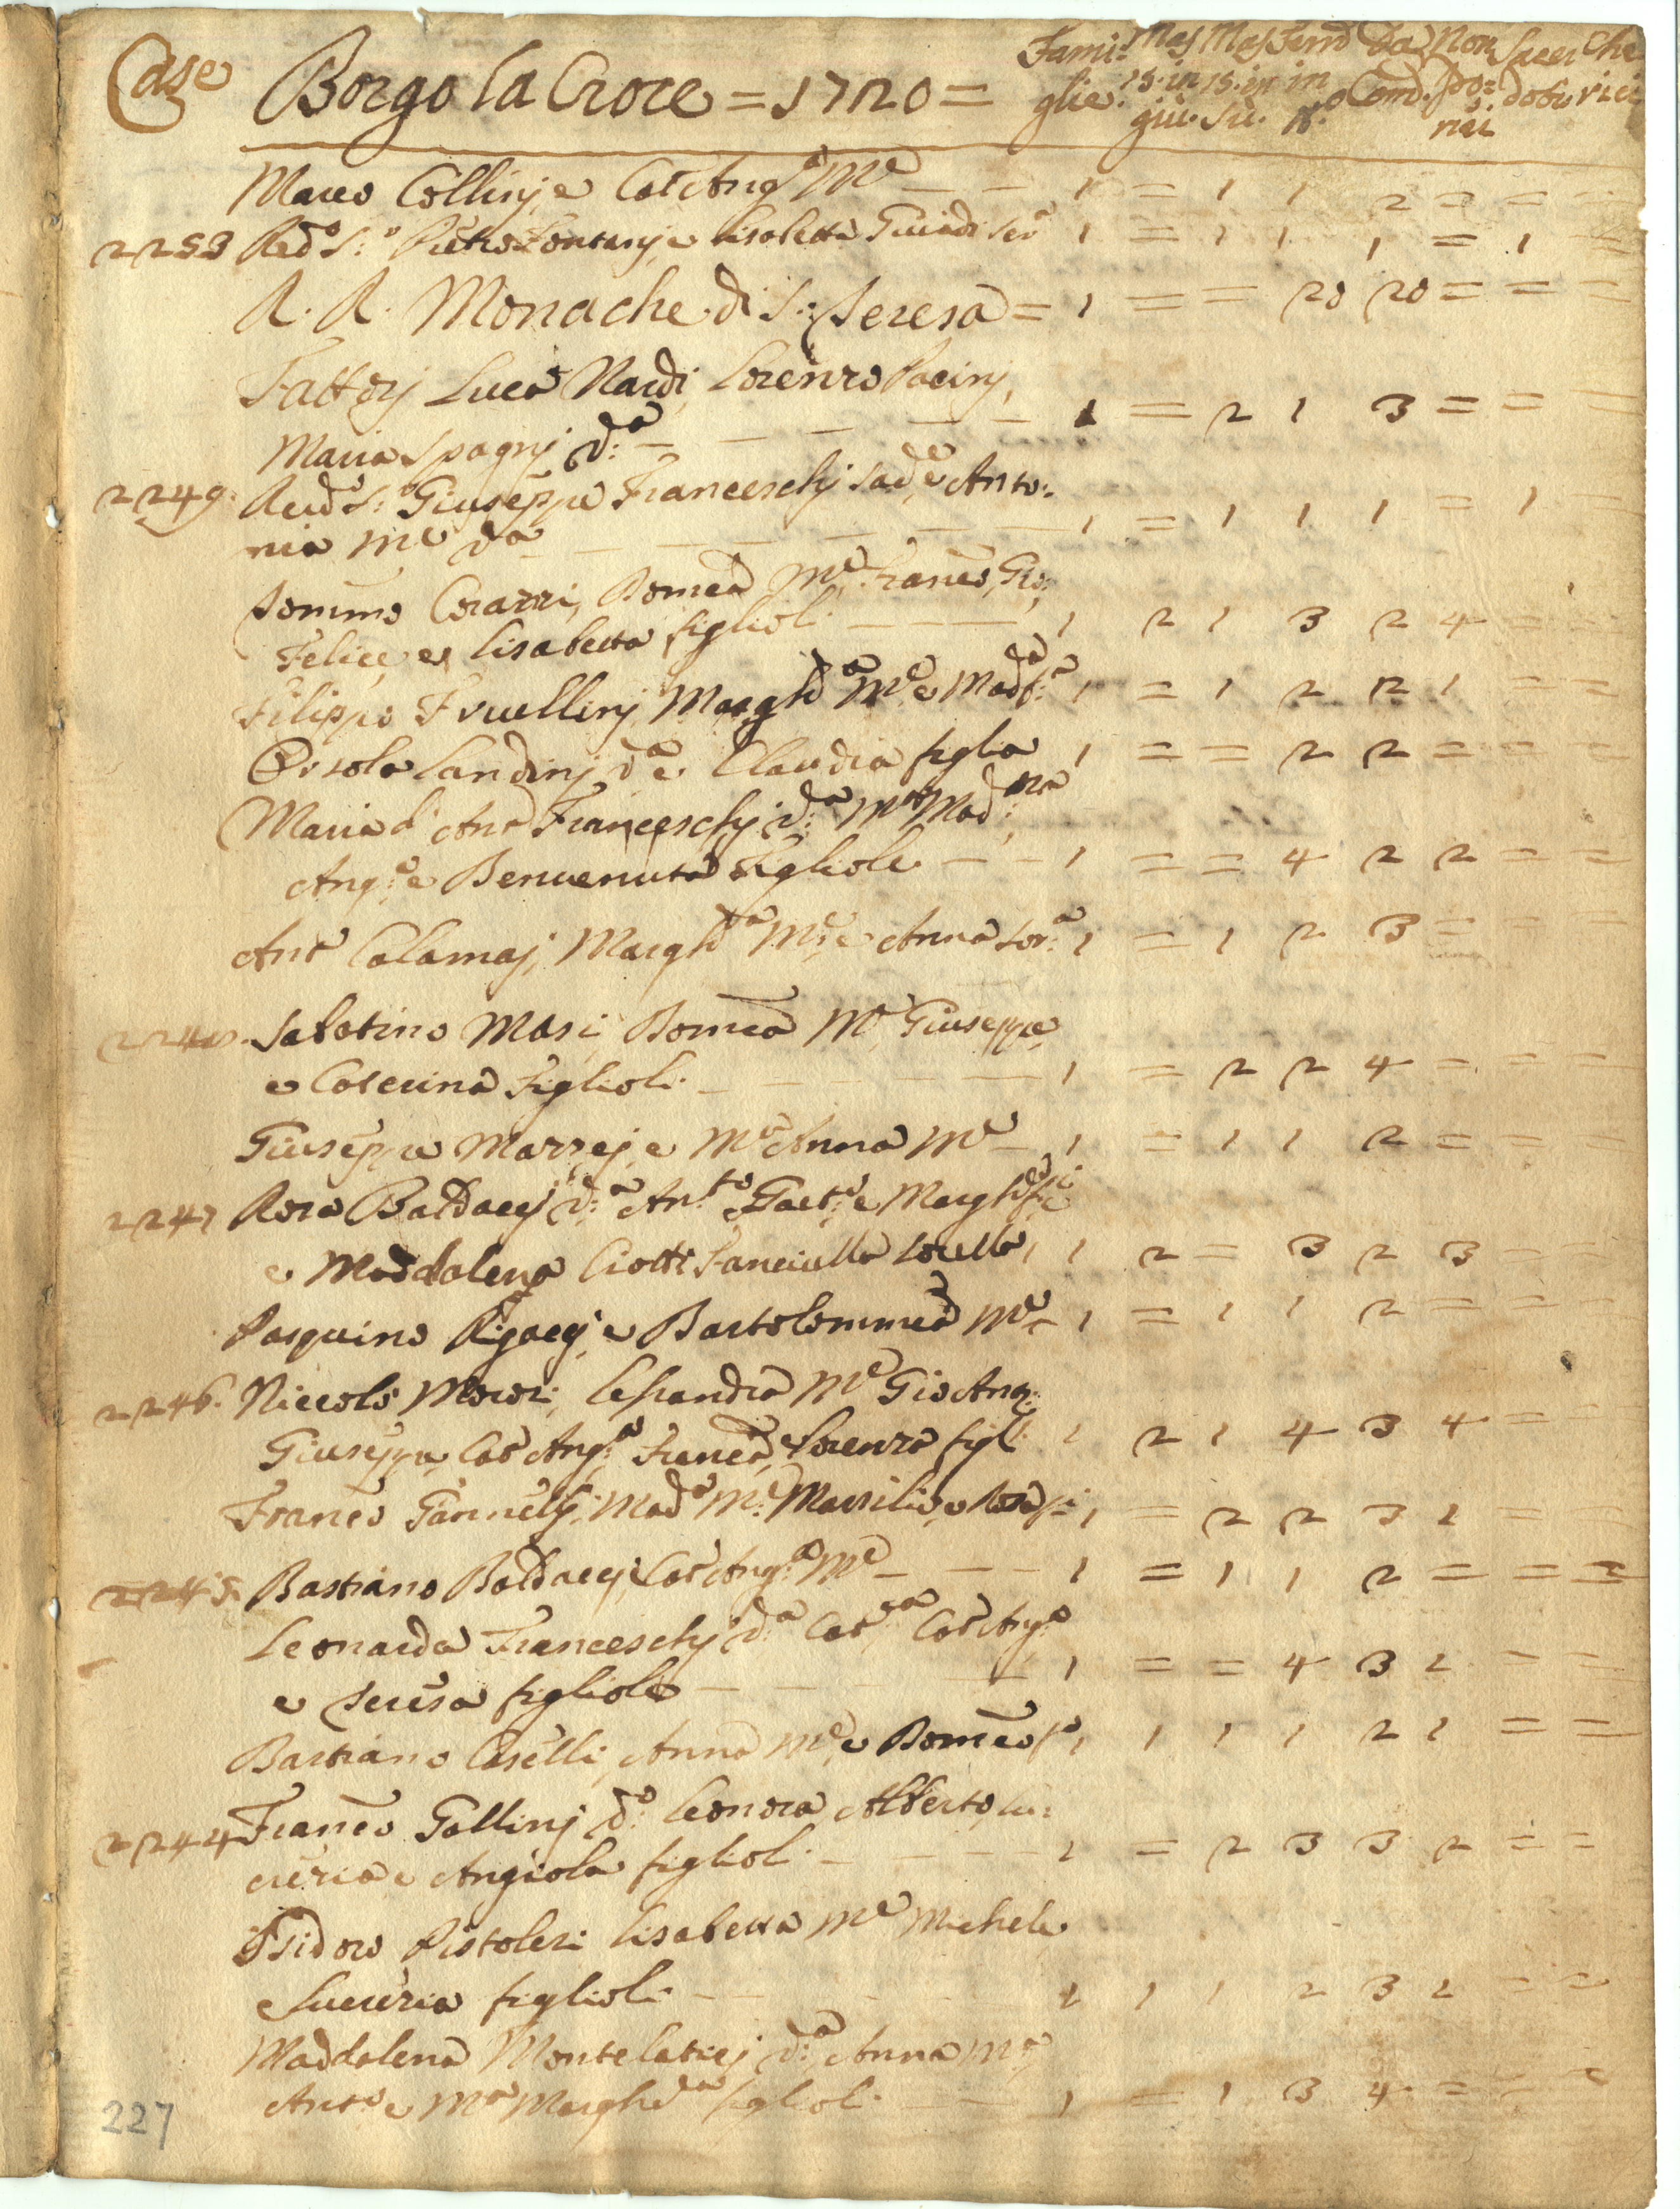 Case Borgo la Croce = 1720 = Fami: glie. Mas 15. in giù. Mas 15. in sù. Fem in N.o Da Com. Non Com. Sacer doti Che rici
Marco Collinj, e Cat Ang.a M.e — — 1 = 1 1 2 = = =
2253 Red.o S.r Pietro Fontanj, e Lisabetta Guidi Ser.a 1 = 1 1 1 = 1 =
R. R. Monache di S.: Teresa = 1 = = 20 20 = = =
Fattorj Luca Nardi, Lorenzo Pacinj,
Maria Spagnj d:a — — — — — 1 = 2 1 3 = = =
2249. Red.o S: Giuseppe Franceschj Sad.e, e Anto:
nia M.e d.a — — — — — 1 = 1 1 1 = 1
Tommo Corazzi, Domca M.e, Franco, Gio:,
Felice, e Lisabetta figlioli — — — 1 2 1 3 2 4 = =
Filippo Fruellinj Margh.a M.e e Mad.a f.a 1 = 1 2 2 1 = =
Orsola Landinj d.a e Claudia figlia 1 = = 2 2 = = =
Maria d'Ant.o Franceschj d.a M.a Mad.na
Ang.a e Benvenuta figliole — — 1 = = 4 2 2 = =
Ant.o Calamaj, Margh.a M.e, e Anna sor.a 1 = 1 2 3 = = =
2248. Sabatino Masi, Domca M.e Giuseppe,
e Caterina figlioli — — 1 = 2 2 4 = = =
Giuseppe Mazzej, e M.a Anna M.e — 1 = 1 1 2 = = =
2247 Rosa Baldaccj d:a Ant.o Gaet.o e Margh.a f.li
e Maddalena Ciotti fanciulla sorella, 1 2 = 3 2 3 = =
Pasquino Rigaccj, e Bartolommea M.e — 1 = 1 1 2 = = =
2246. Niccolò Morozi, Lessandra M.e Gio Ang:
Giuseppe, Cat Ang.a, Franca, e Lorenza figl: 1 2 1 4 3 4 = =
Franco Giannellj, Mad.a M.e Massilio, e Rosa f.li 1 = 2 2 3 1 = =
2245. Bastiano Baldaccj, Cat Ang.a M.e — — — 1 = 1 1 2 = = =
Leonarda Franceschj d.a Cat.a Cat Ang.a
e Teresa figliole — — — — 1 = = 4 3 1 = =
Bastiano Caselli, Anna M.e, e Domco f.o, 1 1 1 1 2 1 = =
2244 Franco Gallinj d.o Leonora Alberto, Lu:
creria e Angiola figlioli — — — 1 = 2 3 3 2 = =
Isidoro Pistolesi Lisabetta M.e Michele
e Lucreria figlioli — — — 1 1 1 2 3 1 = =
Maddalena Montelaticj d.a Anna M.a
Ant.o e M.a Margh.a figlioli — — 1 = 1 3 4 = = =
227